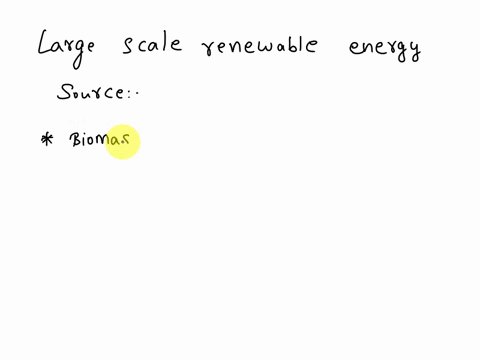 Large scale renewable energy
Source:-
* Biomas